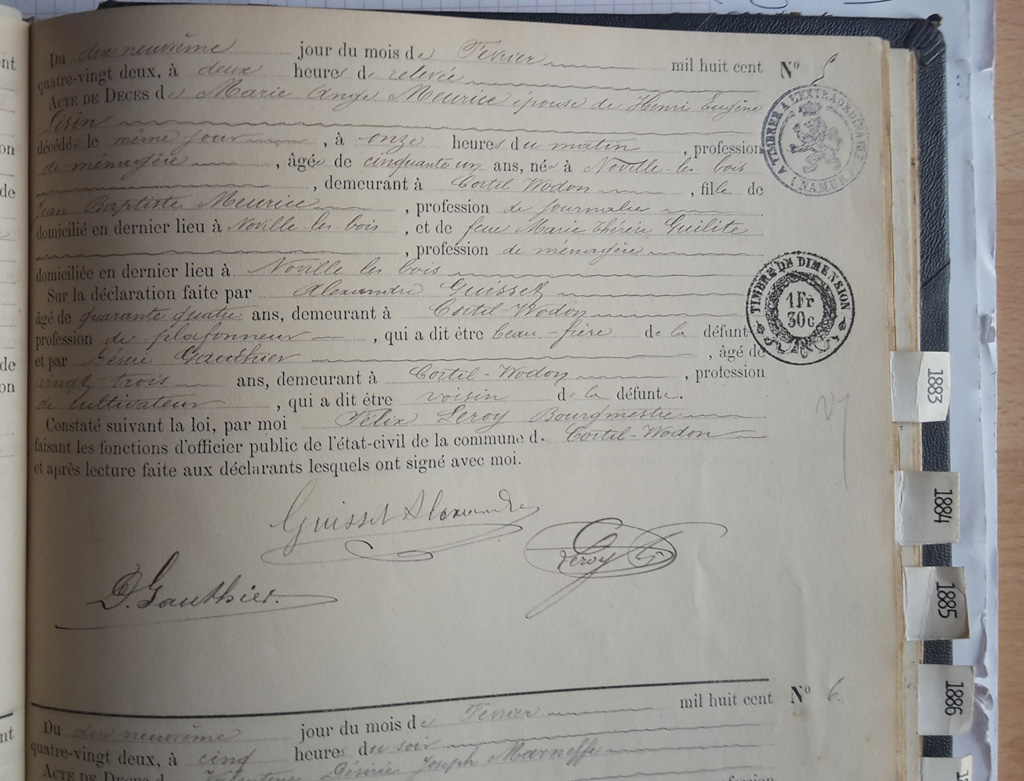 Du dix neuvième jour du mois de Février mil huit cent N° 5
quatre-vingt deux, à deux heures de relevée
ACTE DE DECES de Marie Ange Meurice épouse de Henri Eugène
Pisin
décédée le même jour, à onze heures du matin, profession
de ménagère, âgée de cinquante un ans, née à Noville les bois
, demeurant à Cortil Wodon, fille de
Jean Baptiste Meurice, profession de journalier
domicilié en dernier lieu à Noville les bois, et de feue Marie thérèse Guilite
, profession de ménagère
domiciliée en dernier lieu à Noville les bois
Sur la déclaration faite par Alexandre Guisset
âgé de quarante quatre ans, demeurant à Cortil-Wodon
profession de plafonneur, qui a dit être beau-frère de la défunte
et par Désiré Gauthier, âgé de
vingt trois ans, demeurant à Cortil-Wodon, profession
de cultivateur, qui a dit être voisin de la défunte.
Constaté suivant la loi, par moi Félix Leroy Bourgmestre
faisant les fonctions d'officier public de l'état-civil de la commune de Cortil-Wodon
et après lecture faite aux déclarants lesquels ont signé avec moi.
Guisset Alexandre
Leroy
D. Gauthier.
Du dix neuvième jour du mois de Février mil huit cent N° 6
quatre-vingt deux, à cinq heures du soir
ACTE DE DECES de Désirée Joseph Marneffe
TIMBRE A L'EXTRAORDINAIRE
NAMUR
TIMBRE DE DIMENSION
1 Fr
30c
1883
1884
1885
1886